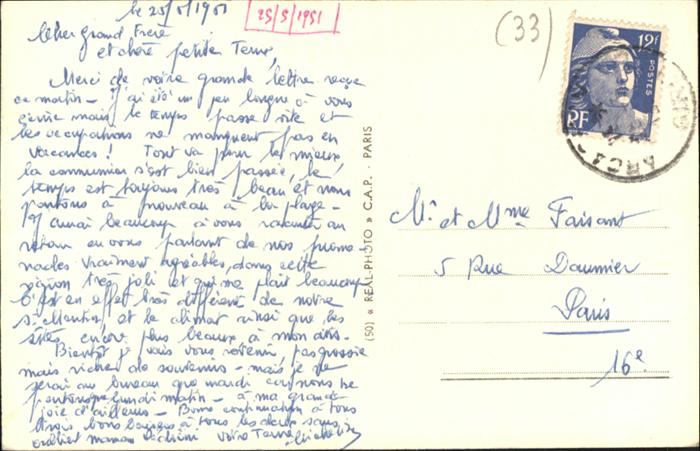 le 25/5/1951
25/5/1951
(33)
Cher grand Frère
et chère petite Terme,
Merci de votre grande lettre reçue
ce matin - J'ai été un peu longue à vous
écrire mais le temps passe vite et
les occupations ne manquent pas en
vacances ! Tout va pour le mieux,
la communion s'est bien passée, le
temps est toujours très beau et nous
partons à nouveau à la plage -
J'aurai beaucoup à vous raconter au
retour en vous parlant de nos prome
nades vraiment agréables, dans cette
région très jolie et qui me plait beaucoup
C'est en effet très différent de notre
et le climat ainsi que les
sites, encore plus beaux à mon avis.
Bientôt je vais vous revenir, pas grossie
mais riche de souvenirs - mais je ne
serai au bureau que mardi car nous ne
lundi matin - à ma grande
joie d'ailleurs - Bonne continuation à tous
trois bons baisers à tous les deux sans
oublier maman Votre
12f
POSTES
RF
(50) « REAL-PHOTO » C.A.P. - PARIS
Mr et Mme Faisant
5 Rue Daumier
Paris
16e